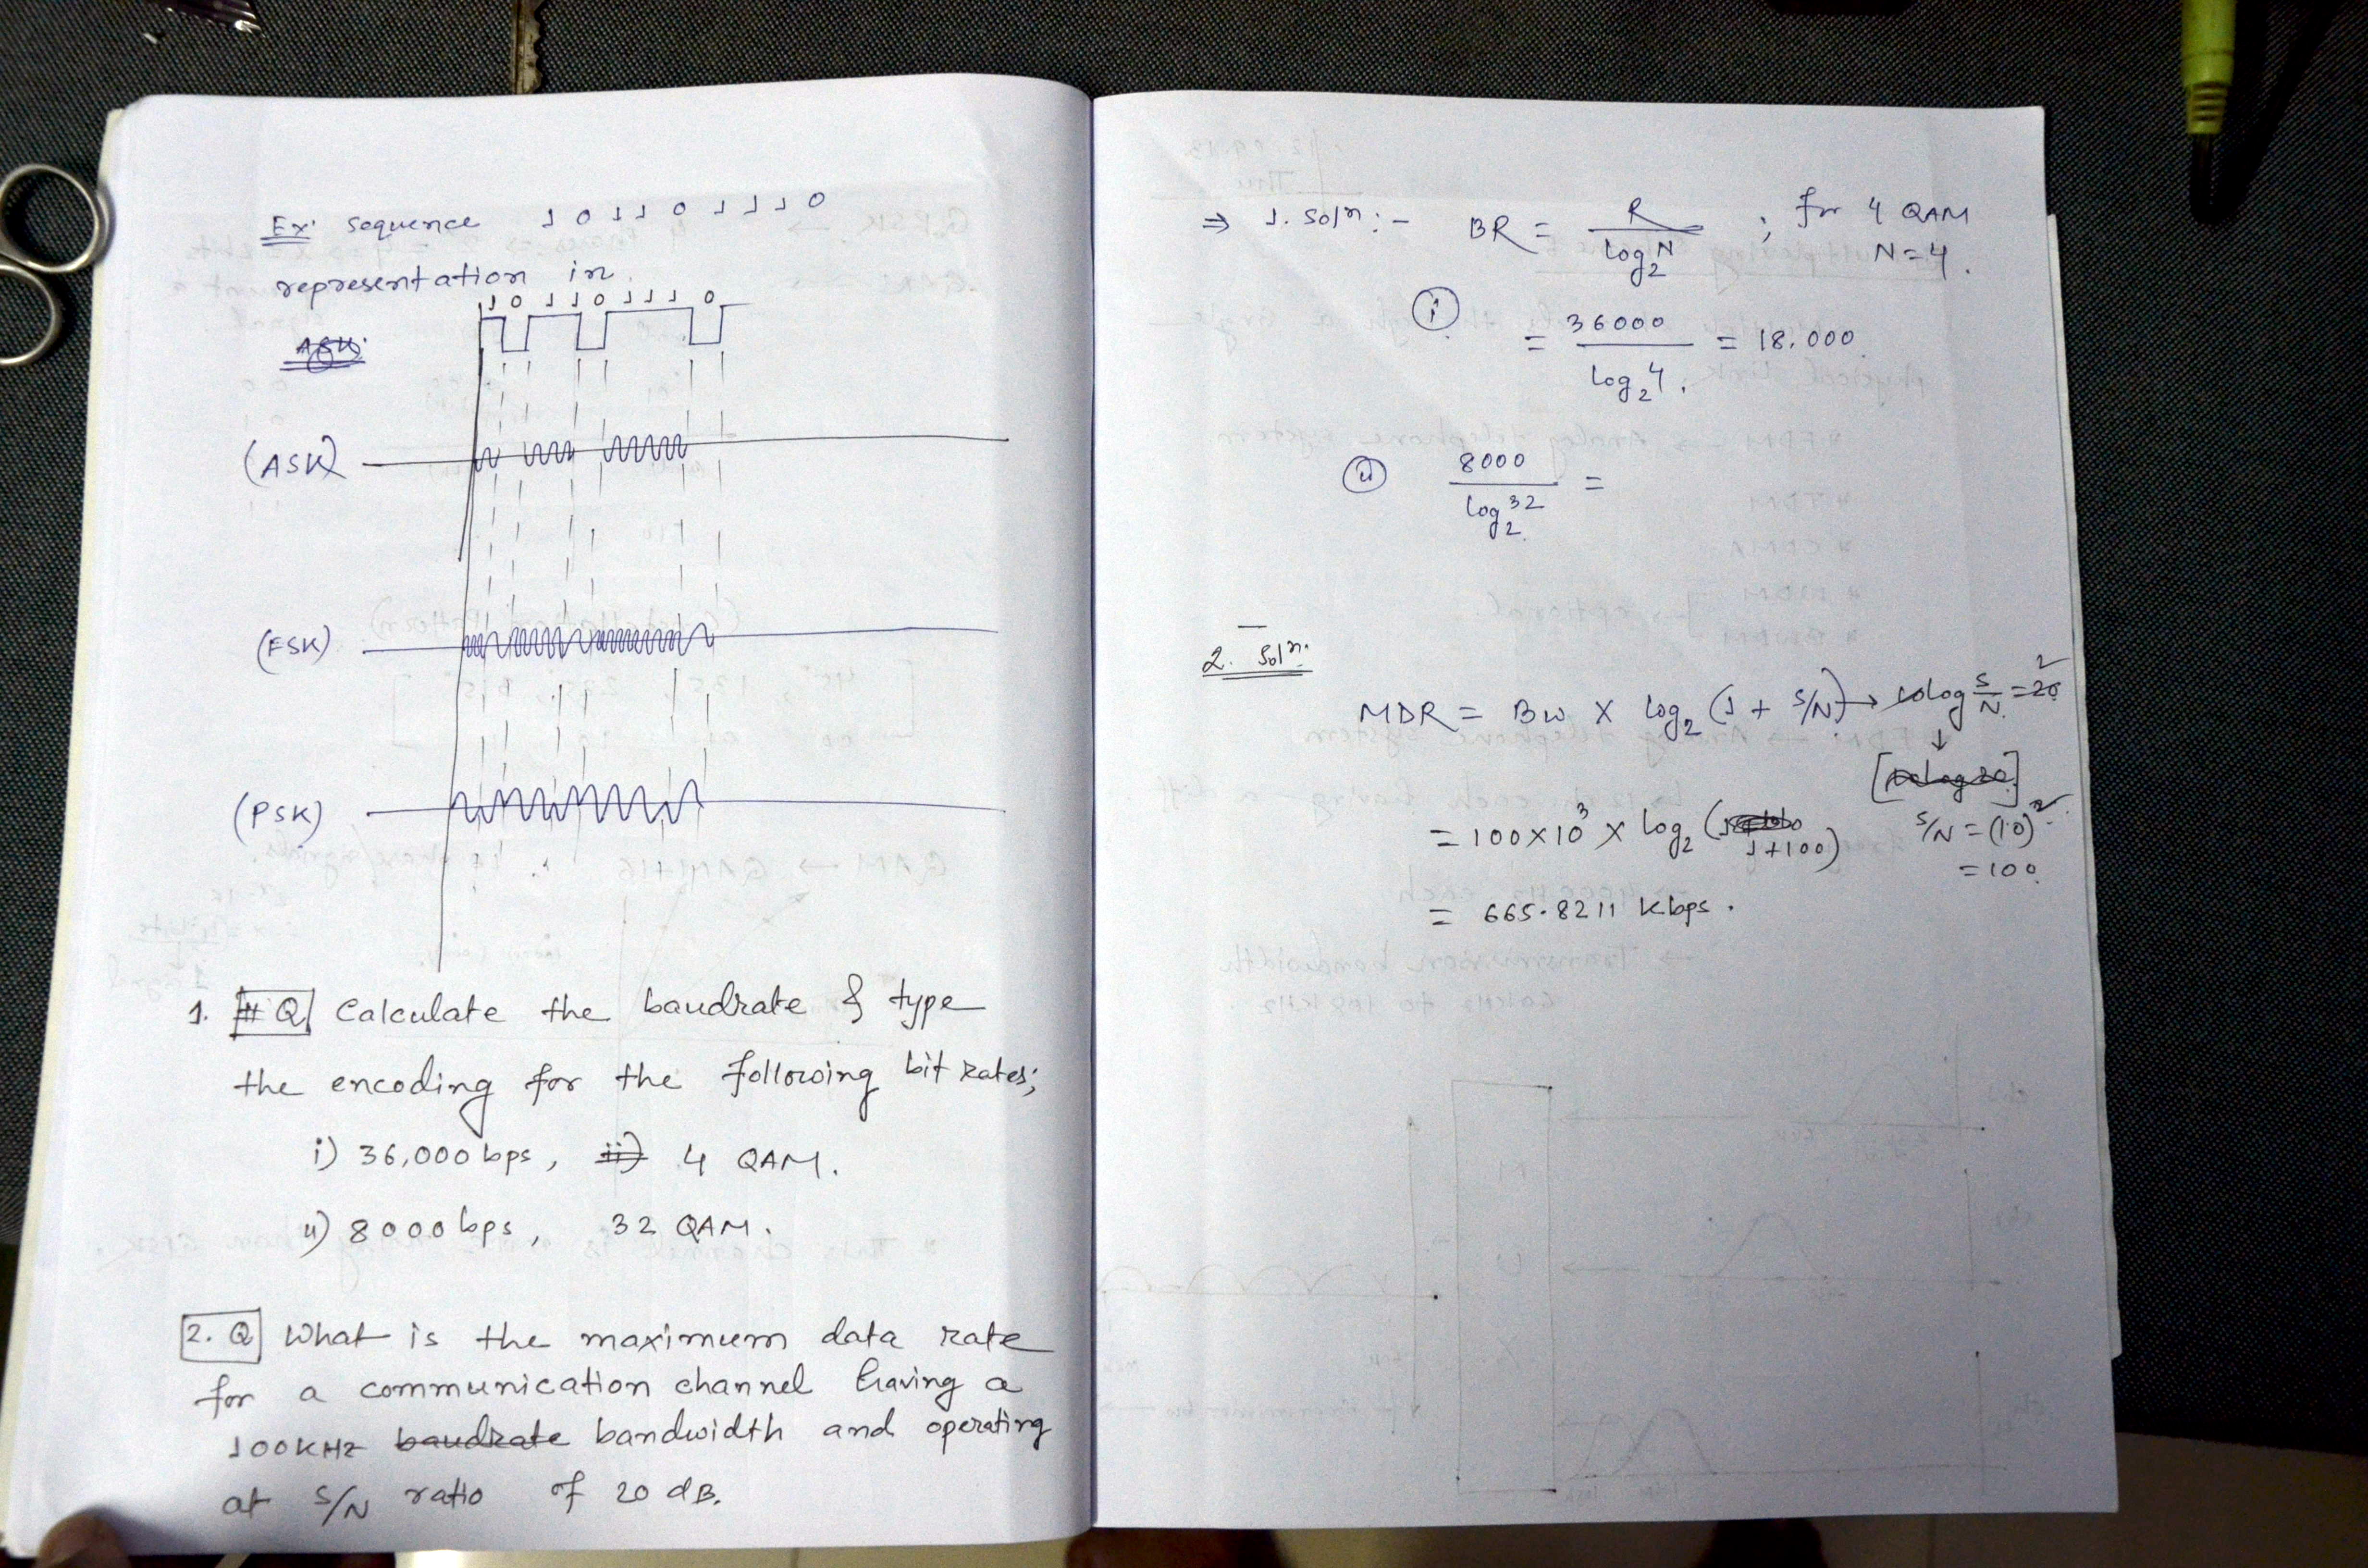 Ex: sequence 1 0 1 1 0 1 1 1 0
representation in
1 0 1 1 0 1 1 1 0
ASK:
(ASK)
(FSK)
(PSK)
1. #Q Calculate the baudrate & type
the encoding for the following bit rates;
i) 36,000 bps, ii) 4 QAM.
ii) 8000 bps, 32 QAM.
2. Q What is the maximum data rate
for a communication channel having a
100KHz baudrate bandwidth and operating
at S/N ratio of 20 dB.
⇒ 1. Solⁿ:- BR = R / log₂N ; for 4 QAM
N=4.
(i) = 36000 / log₂4. = 18,000
(ii) 8000 / log₂32 =
2. Solⁿ:
MDR = BW X log₂ (1 + S/N) → 10log S/N = 20 2
↓
[10log20]
= 100x10³ x log₂ (1+100) S/N = (10)²
= 100
= 665.8211 kbps.